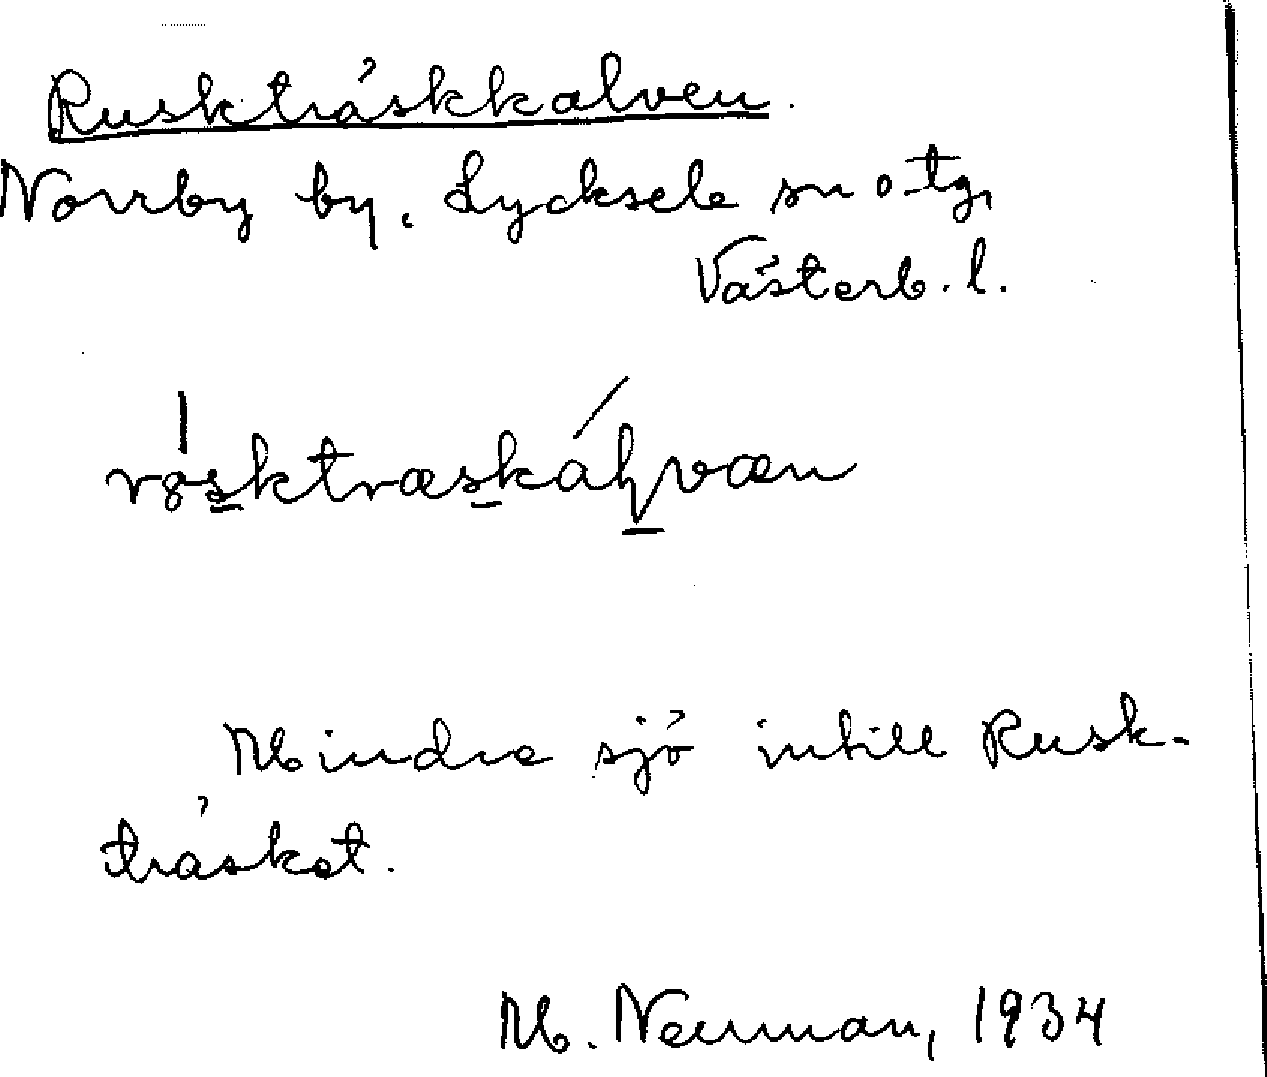 Ruskträskkalven.
Norrby by, Lycksele sn o. tg,
Västerb. l.
Mindre sjö intill Rusk-
träsket.
M. Neuman, 1934